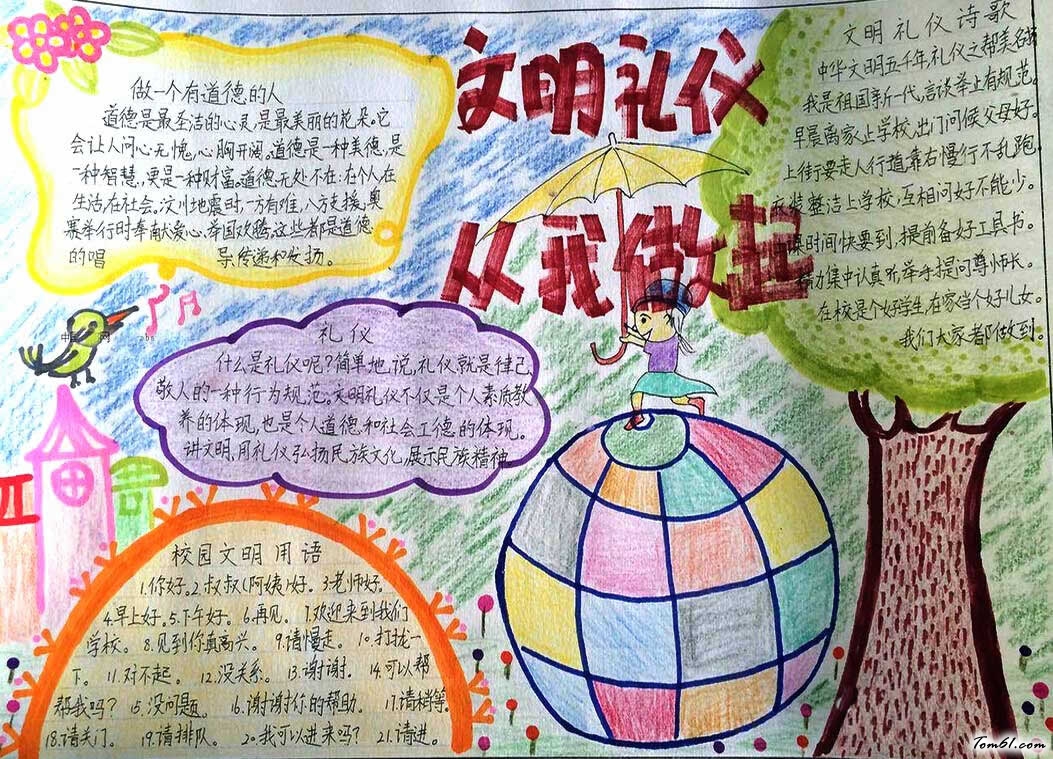 文明礼仪
从我做起
做一个有道德的人
道德是最圣洁的心灵,是最美丽的花朵。它
会让人问心无愧,心胸开阔。道德是一种美德,是
一种智慧,更是一种财富。道德无处不在:在个人在
生活,在社会。汶川地震时,一方有难,八方支援,奥
赛举行时奉献爱心、举国欢腾,这些都是道德
的唱 导传递和发扬。
礼仪
什么是礼仪呢?简单地说,礼仪就是律己,
敬人的一种行为规范。文明礼仪不仅是个人素质教
养的体现,也是个人道德和社会工德的体现。
讲文明,用礼仪弘扬民族文化,展示民族精神
校园文明用语
1.你好。2.叔叔(阿姨)好。3.老师好。
4.早上好。5.下午好。6.再见。7.欢迎来到我们
学校。8.见到你真高兴。9.请慢走。10.打拢一
下。11.对不起。12.没关系。13.谢谢。14.可以帮
帮我吗?15.没问题。16.谢谢你的帮助。17.请稍等。
18.请关门。19.请排队。20.我可以进来吗?21.请进。
文明礼仪诗歌
中华文明五千年,礼仪之帮美名
我是祖国新一代,言谈举上有规范。
早晨离家上学校,出门问候父母好。
上街要走人行道,靠右慢行不乱跑
装整洁上学校,互相问好不能少。
课时间快要到,提前备好工具书。
精力集中认真听,举手提问尊师长。
在校是个好学生,在家当个好儿女。
我们大家都做到。
Tom61.com